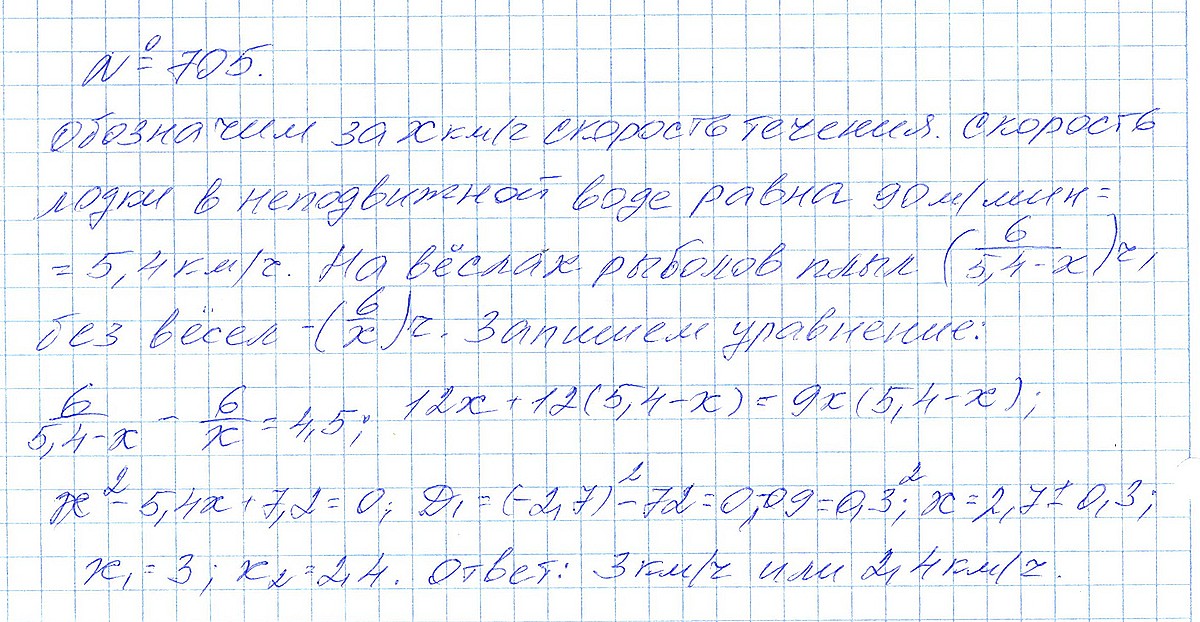 № 705.
Обозначим за x км/ч скорость течения. Скорость
лодки в неподвижной воде равна 90 м/мин =
= 5,4 км/ч. На вёслах рыболов плыл (6/(5,4-x)) ч,
без вёсел - (6/x) ч. Запишем уравнение:
6/(5,4-x) - 6/x = 4,5; 12x + 12(5,4-x) = 9x(5,4-x);
x² - 5,4x + 7,2 = 0; D₁ = (-2,7)² - 72 = 0,09 = 0,3²; x = 2,7 ± 0,3;
x₁ = 3; x₂ = 2,4. Ответ: 3 км/ч или 2,4 км/ч.